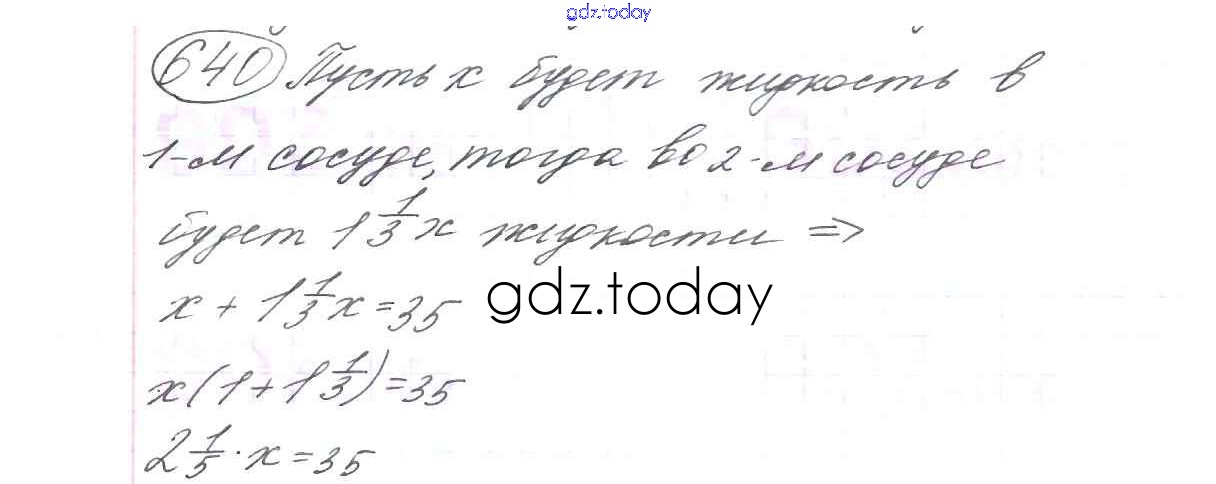 gdz.today
640 Пусть x будет жидкость в
1-м сосуде, тогда во 2-м сосуде
будет 1 1/3 x жидкости ⇒
x + 1 1/3 x = 35
gdz.today
x(1 + 1 1/3) = 35
2 1/5 · x = 35